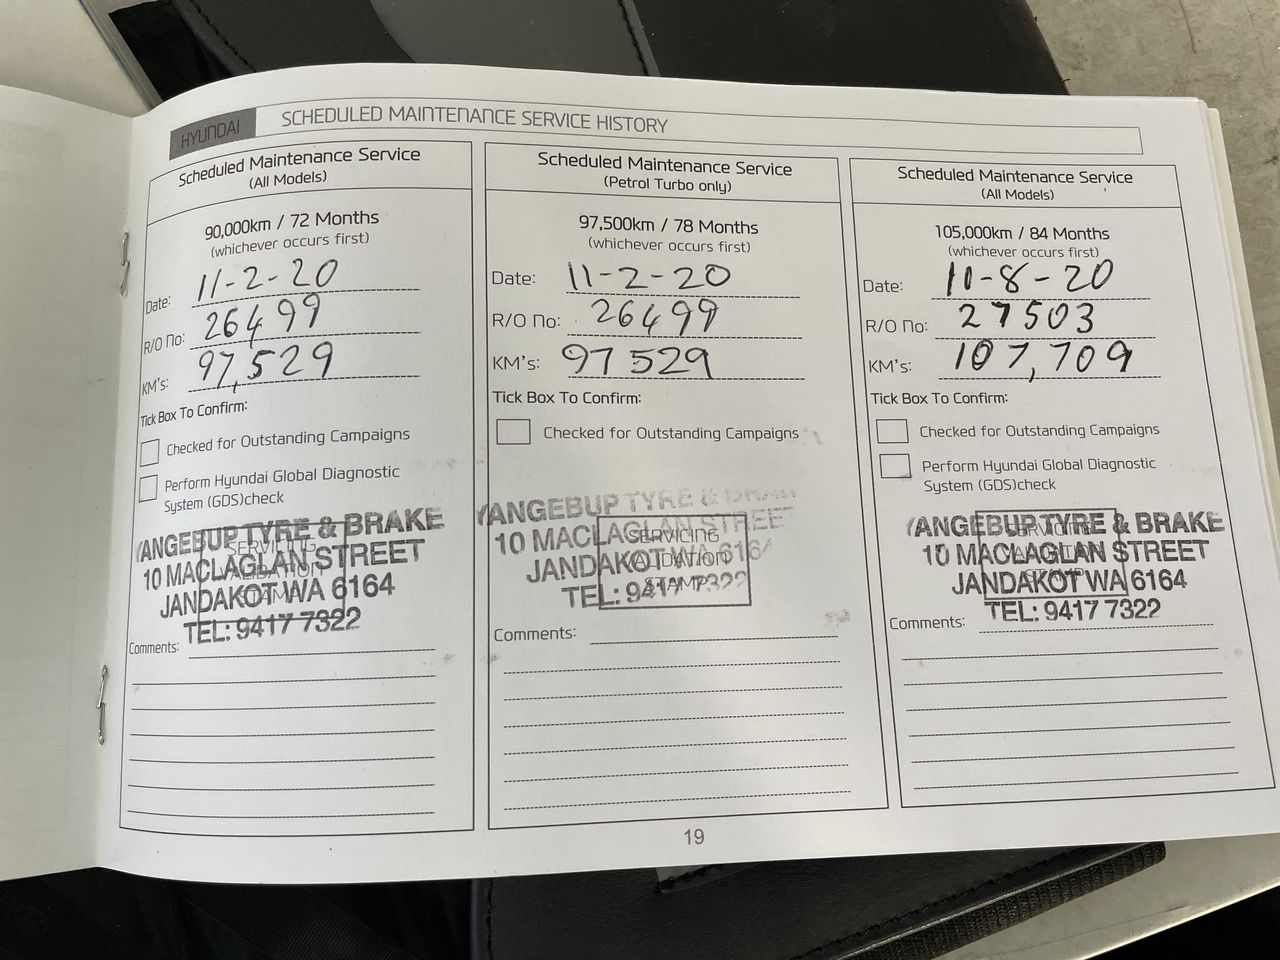 HYUNDAI
SCHEDULED MAINTENANCE SERVICE HISTORY
Scheduled Maintenance Service
(All Models)
90,000km / 72 Months
(whichever occurs first)
Date: 11-2-20
R/O No: 26499
KM's: 97,529
Tick Box To Confirm:
Checked for Outstanding Campaigns
Perform Hyundai Global Diagnostic
System (GDS)check
YANGEBUP TYRE & BRAKE
10 MACLAGLAN STREET
JANDAKOT WA 6164
TEL: 9417 7322
SERVICING
VALIDATION
STAMP
Comments:
Scheduled Maintenance Service
(Petrol Turbo only)
97,500km / 78 Months
(whichever occurs first)
Date: 11-2-20
R/O No: 26499
KM's: 97529
Tick Box To Confirm:
Checked for Outstanding Campaigns
YANGEBUP TYRE & BRAKE
10 MACLAGLAN STREET
JANDAKOT WA 6164
TEL: 9417 7322
SERVICING
VALIDATION
STAMP
Comments:
Scheduled Maintenance Service
(All Models)
105,000km / 84 Months
(whichever occurs first)
Date: 11-8-20
R/O No: 27503
KM's: 107,709
Tick Box To Confirm:
Checked for Outstanding Campaigns
Perform Hyundai Global Diagnostic
System (GDS)check
YANGEBUP TYRE & BRAKE
10 MACLAGLAN STREET
JANDAKOT WA 6164
TEL: 9417 7322
SERVICING
VALIDATION
STAMP
Comments:
19